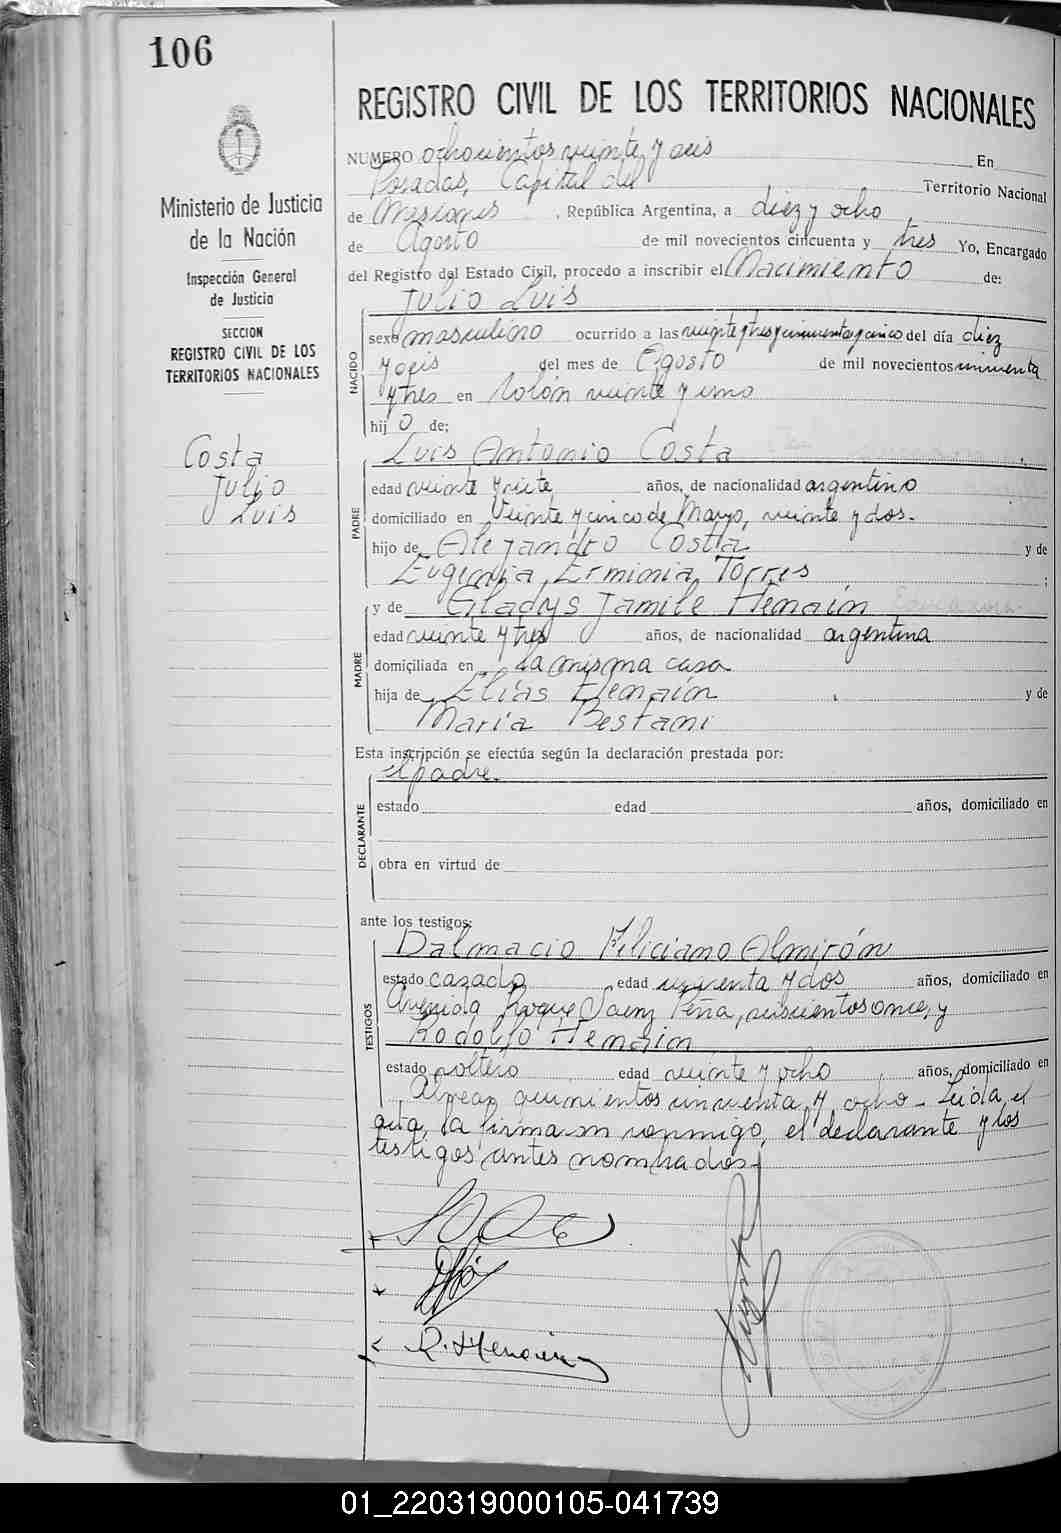 106
Ministerio de Justicia
de la Nación
Inspección General
de Justicia
SECCION
REGISTRO CIVIL DE LOS
TERRITORIOS NACIONALES
Costa
Julio
Luis
REGISTRO CIVIL DE LOS TERRITORIOS NACIONALES
NUMERO ochocientos veinte y seis En
Posadas, Capital del Territorio Nacional
de Misiones , República Argentina, a diez y ocho
de Agosto de mil novecientos cincuenta y tres Yo, Encargado
del Registro del Estado Civil, procedo a inscribir el Nacimiento de:
Julio Luis
NACIDO
sexo masculino ocurrido a las veinte y tres y cincuenta y cinco del día diez
y seis del mes de Agosto de mil novecientos cincuenta
y tres en Colón veinte y uno
hijo de;
Luis Antonio Costa
PADRE
edad veinte y siete años, de nacionalidad argentino
domiciliado en Veinte y cinco de Mayo, veinte y dos.
hijo de Alejandro Costa y de
Eugenia Erminia Torres ;
y de Gladys Jamile Henain
MADRE
edad veinte y tres años, de nacionalidad argentina
domiciliada en la misma casa
hija de Elías Henain y de
María Bestani
Esta inscripción se efectúa según la declaración prestada por:
el padre.
DECLARANTE
estado edad años, domiciliado en
obra en virtud de
ante los testigos:
Dalmacio Feliciano Almirón
TESTIGOS
estado casado edad cincuenta y dos años, domiciliado en
Avenida Roque Saenz Peña, seiscientos once, y
Rodolfo Henain
estado soltero edad veinte y ocho años, domiciliado en
quinientos cincuenta y ocho - Leída el
acta, la firman conmigo, el declarante y los
testigos antes nombrados.
R. Henain
01_220319000105-041739